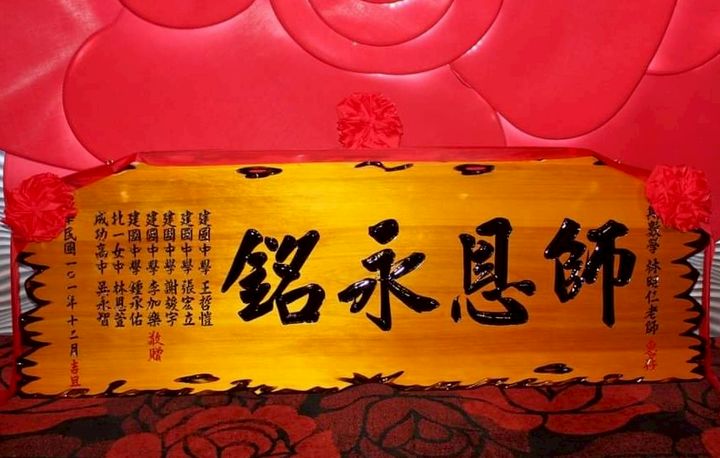 數學 林昭仁老師 惠存
師恩永銘
建國中學 王哲愷
建國中學 張宏立
建國中學 謝竣宇
建國中學 李加樂 敬贈
建國中學 鍾承佑
北一女中 林恩萱
成功高中 吳永智
華民國一〇一年十二月 吉旦